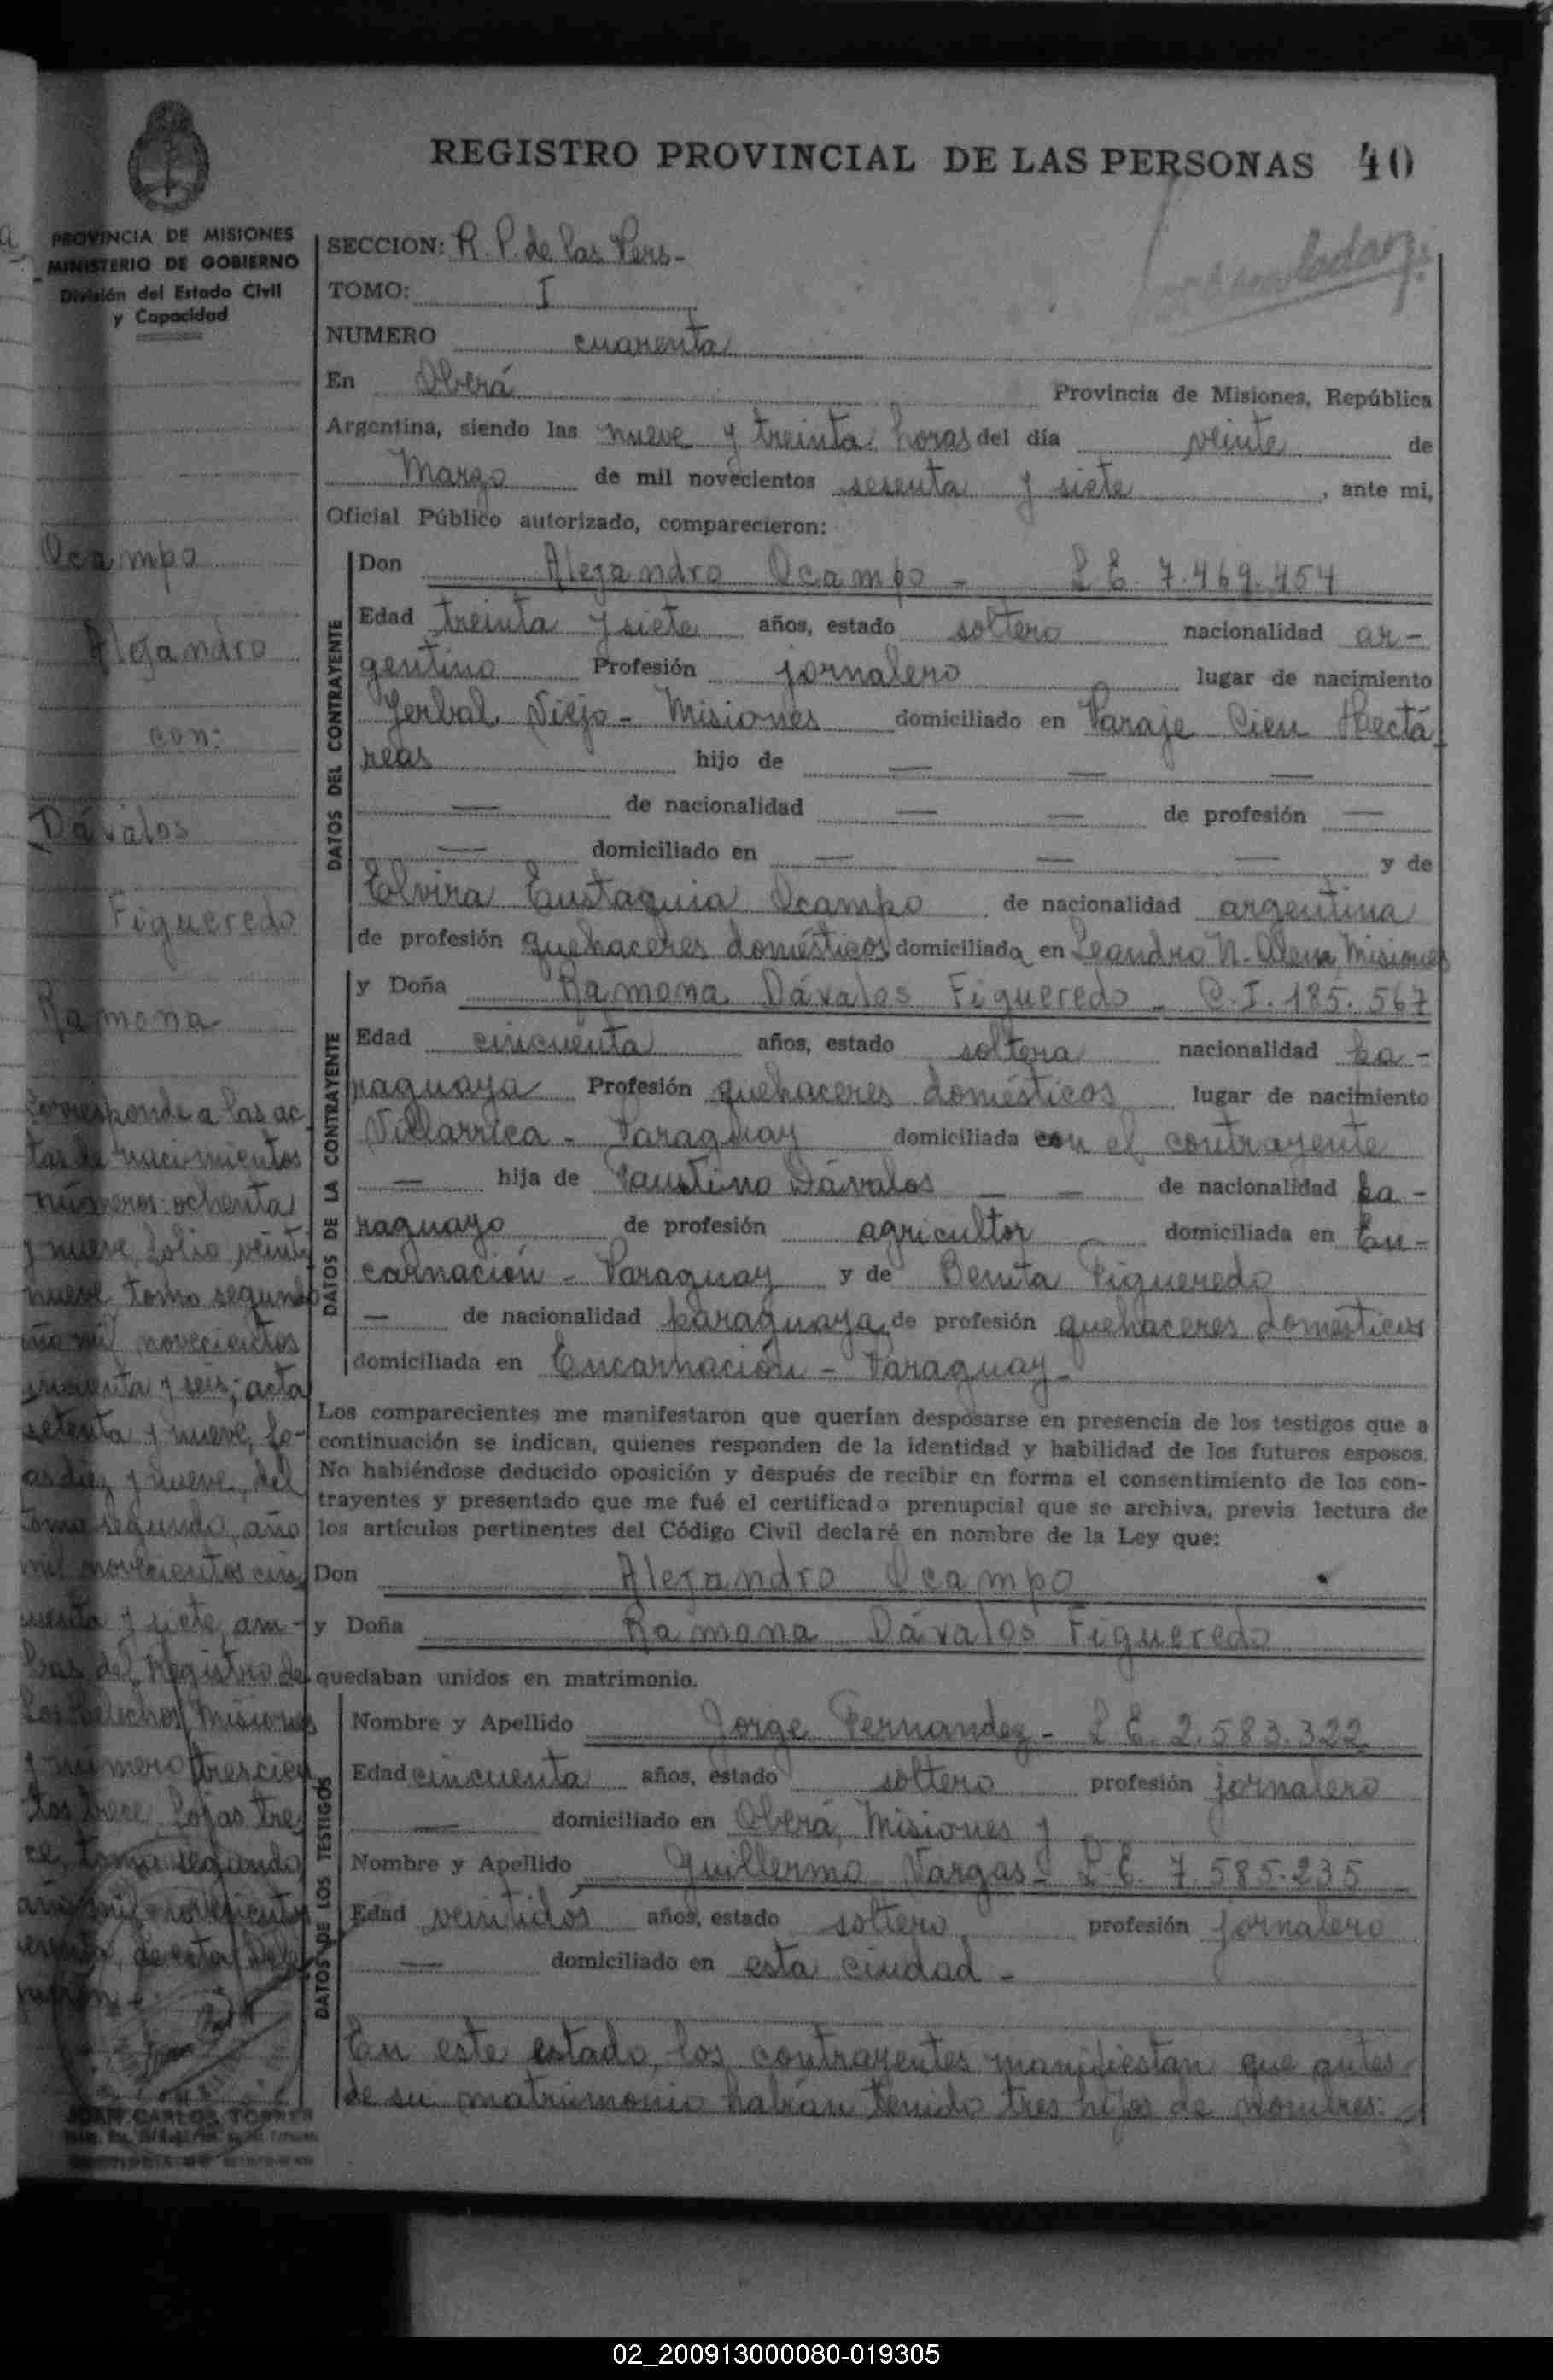 REGISTRO PROVINCIAL DE LAS PERSONAS 40
PROVINCIA DE MISIONES
MINISTERIO DE GOBIERNO
División del Estado Civil
y Capacidad
Ocampo
Alejandro
con:
Dávalos
Figueredo
Ramona
Corresponde a las ac
tas de nacimientos
números: ochenta
y nueve, folio veinti
nueve tomo segundo
año mil novecientos
cincuenta y seis; acta
setenta y nueve, fo-
as diez y nueve, del
Tomo segundo, año
mil novecientos cin
cuenta y siete, am-
bas del Registro de
Los Helechos, Misiones
y número trescien
tos trece, fojas tre
ce, tomo segundo
año mil novecientos
de esta Dele
gación.-
JUAN CARLOS TORRES
SECCION: R. P. de las Pers-
TOMO: I
NUMERO cuarenta
En Oberá Provincia de Misiones, República
Argentina, siendo las nueve y treinta horas del día veinte de
Marzo de mil novecientos sesenta y siete, ante mi,
Oficial Público autorizado, comparecieron:
DATOS DEL CONTRAYENTE
Don Alejandro Ocampo - L E. 7.469.454
Edad treinta y siete años, estado soltero nacionalidad ar-
gentino Profesión jornalero lugar de nacimiento
Yerbal Viejo - Misiones domiciliado en Paraje Cien Hectá
reas hijo de — — —
— de nacionalidad — — de profesión —
— domiciliado en — — — y de
Elvira Eustaquia Ocampo de nacionalidad argentina
de profesión quehaceres domésticos domiciliada en Leandro N. Alem Misiones
DATOS DE LA CONTRAYENTE
y Doña Ramona Dávalos Figueredo - C.I. 185.567
Edad cincuenta años, estado soltera nacionalidad pa-
raguaya Profesión quehaceres domésticos lugar de nacimiento
Villarrica - Paraguay domiciliada con el contrayente
— hija de Faustino Dávalos — — de nacionalidad pa-
raguayo de profesión agricultor domiciliada en En-
carnación - Paraguay y de Benita Figueredo
— de nacionalidad paraguaya de profesión quehaceres domésticos
domiciliada en Encarnación - Paraguay -
Los comparecientes me manifestaron que querían desposarse en presencia de los testigos que a
continuación se indican, quienes responden de la identidad y habilidad de los futuros esposos.
No habiéndose deducido oposición y después de recibir en forma el consentimiento de los con-
trayentes y presentado que me fué el certificado prenupcial que se archiva, previa lectura de
los artículos pertinentes del Código Civil declaré en nombre de la Ley que:
Don Alejandro Ocampo
y Doña Ramona Dávalos Figueredo
quedaban unidos en matrimonio.
DATOS DE LOS TESTIGOS
Nombre y Apellido Jorge Fernandez - L E. 2.583.322
Edad cincuenta años, estado soltero profesión jornalero
— domiciliado en Oberá, Misiones y
Nombre y Apellido Guillermo Vargas - L.E. 7.585.235
Edad veintidós años, estado soltero profesión jornalero
— domiciliado en esta ciudad -
En este estado, los contrayentes manifiestan que antes
de su matrimonio habían tenido tres hijos de nombres:
02_200913000080-019305